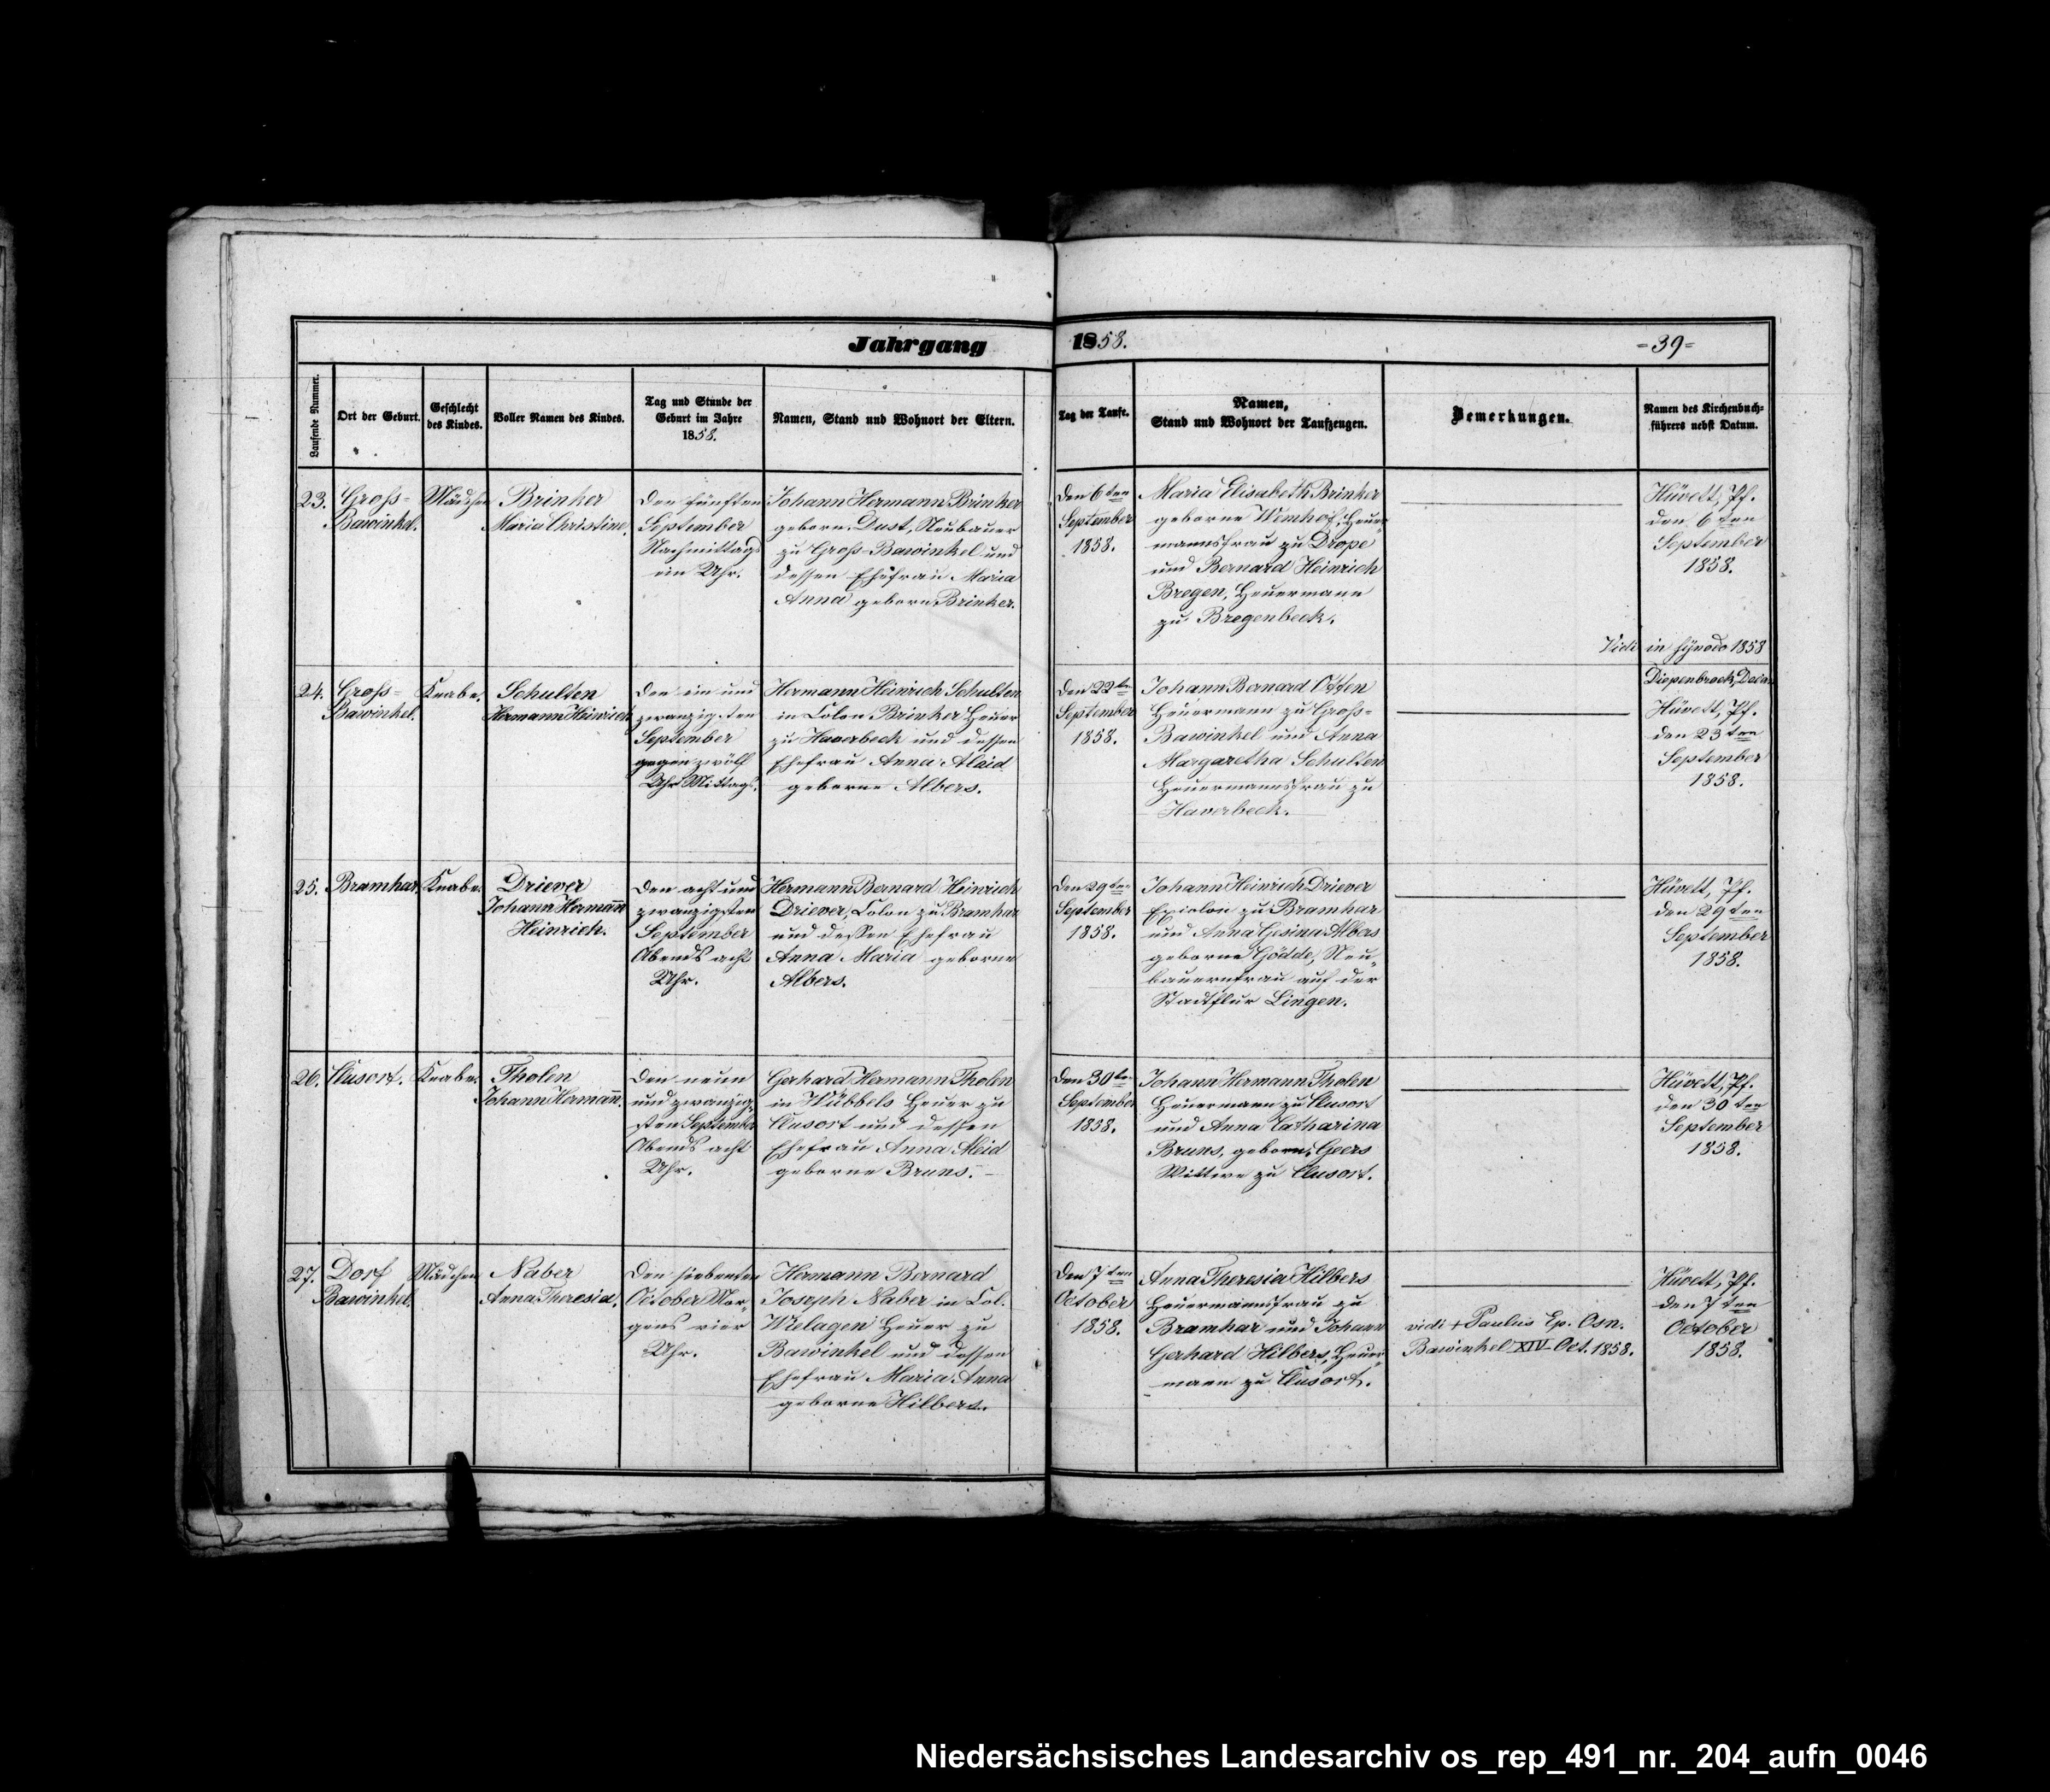 Jahrgang 1858.
-39-
Laufende Nummer.
Ort der Geburt.
Geschlecht
des Kindes.
Voller Namen des Kindes.
Tag und Stunde der
Geburt im Jahre
1858.
Namen, Stand und Wohnort der Eltern.
Tag der Taufe.
Namen,
Stand und Wohnort der Taufzeugen.
Bemerkungen.
Namen des Kirchenbuch-
führers nebst Datum.
23.
Groß-
Bawinkel.
Mädchen
Brinker
Maria Christine.
Den fünften
September
Nachmittags
ein Uhr.
Johann Hermann Brinker
geborn. Dust, Neubauer
zu Groß-Bawinkel und
dessen Ehefrau Maria
Anna geborn Brinker.
Den 6ten
September
1858.
Maria Elisabeth Brinker
geborne Wemhof, Heuer-
mannsfrau zu Drope
und Bernard Heinrich
Bregen, Heuermann
zu Bregenbeck.
Hüvett, Pf.
den 6ten
September
1858.
Vidi in synodo 1858
Diepenbrock, Decan
24.
Groß-
Bawinkel.
Knabe.
Schulten
Hermann Heinrich
Den ein und
zwanzigsten
September
gegen zwölf
Uhr Mittags.
Hermann Heinrich Schulten
in Colon Brinker Heuer
zu Haverbeck und dessen
Ehefrau Anna Alaid
geborne Albers.
Den 22ten
September
1858.
Johann Bernard Otten
Heuermann zu Groß-
Bawinkel und Anna
Margaretha Schulten
Heuermannsfrau zu
Haverbeck.
Hüvett, Pf.
den 23ten
September
1858.
25.
Bramhar.
Knabe.
Driever
Johann Hermann
Heinrich.
Den acht und
zwanzigsten
September
Abends acht
Uhr.
Hermann Bernard Heinrich
Driever, Colon zu Bramhar
und dessen Ehefrau
Anna Maria geborne
Albers.
Den 29ten
September
1858.
Johann Heinrich Driever
Excolon zu Bramhar
und Anna Gesina Albers
geborne Gödde, Neu-
bauernfrau auf der
Stadtflur Lingen.
Hüvett, Pf.
den 29ten
September
1858.
26.
Clusort.
Knabe.
Tholen
Johann Hermann.
Den neun
und zwanzig-
sten September
Abends acht
Uhr.
Gerhard Hermann Tholen
in Wübbels Heuer zu
Clusort und dessen
Ehefrau Anna Aleid
geborne Bruns.
Den 30ten
September
1858.
Johann Hermann Tholen
Heuermann zu Clusort
und Anna Catharina
Bruns, geborn. Geers
Wittwe zu Clusort.
Hüvett, Pf.
den 30ten
September
1858.
27.
Dorf
Bawinkel.
Mädchen
Naber
Anna Theresia.
Den siebenten
October Mor-
gens vier
Uhr.
Hermann Bernard
Joseph Naber in Col.
Wielagen Heuer zu
Bawinkel und dessen
Ehefrau Maria Anna
geborne Hilbers.
Den 7ten
October
1858.
Anna Theresia Hilbers
Heuermannsfrau zu
Bramhar und Johann
Gerhard Hilbers, Heuer-
mann zu Clusort.
vidi + Paulus Ep. Osn.
Bawinkel XIV. Oct. 1858.
Hüvett, Pf.
den 7ten
October
1858.
Niedersächsisches Landesarchiv os_rep_491_nr._204_aufn_0046